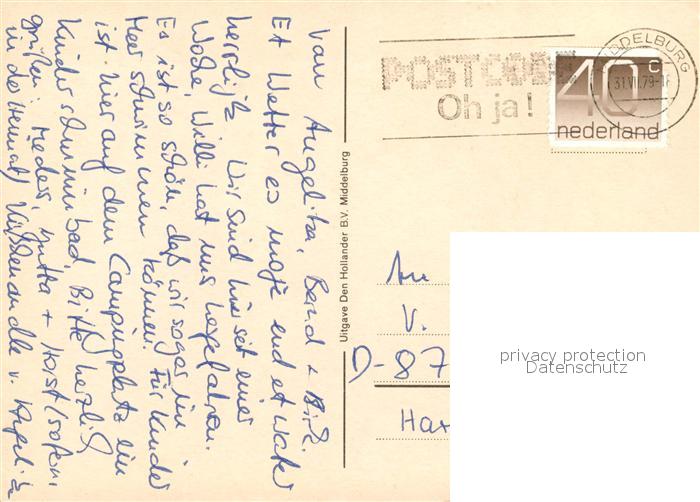 Van Angelika, Bernd + Birg.
Et Wetter es moje end et water
herrlijk. Wir sind hier seit einer
Woche, Willi hat uns hergefahren.
Es ist so schön, daß wir sogar im
Meer schwimmen können. Für Kinder
ist hier auf dem Campingplatz ein
Kinderschwimmbad. Bitte herzlich
grüßen Meders, Jutta + Horst (sofern
in der Heimat) Küßchen an alle v.
Uitgave Den Hollander B.V. Middelburg
POSTCODE
Oh ja!
MIDDELBURG
31.VII.79-
40 c
nederland
An
V.
D-87
Ha
privacy protection
Datenschutz